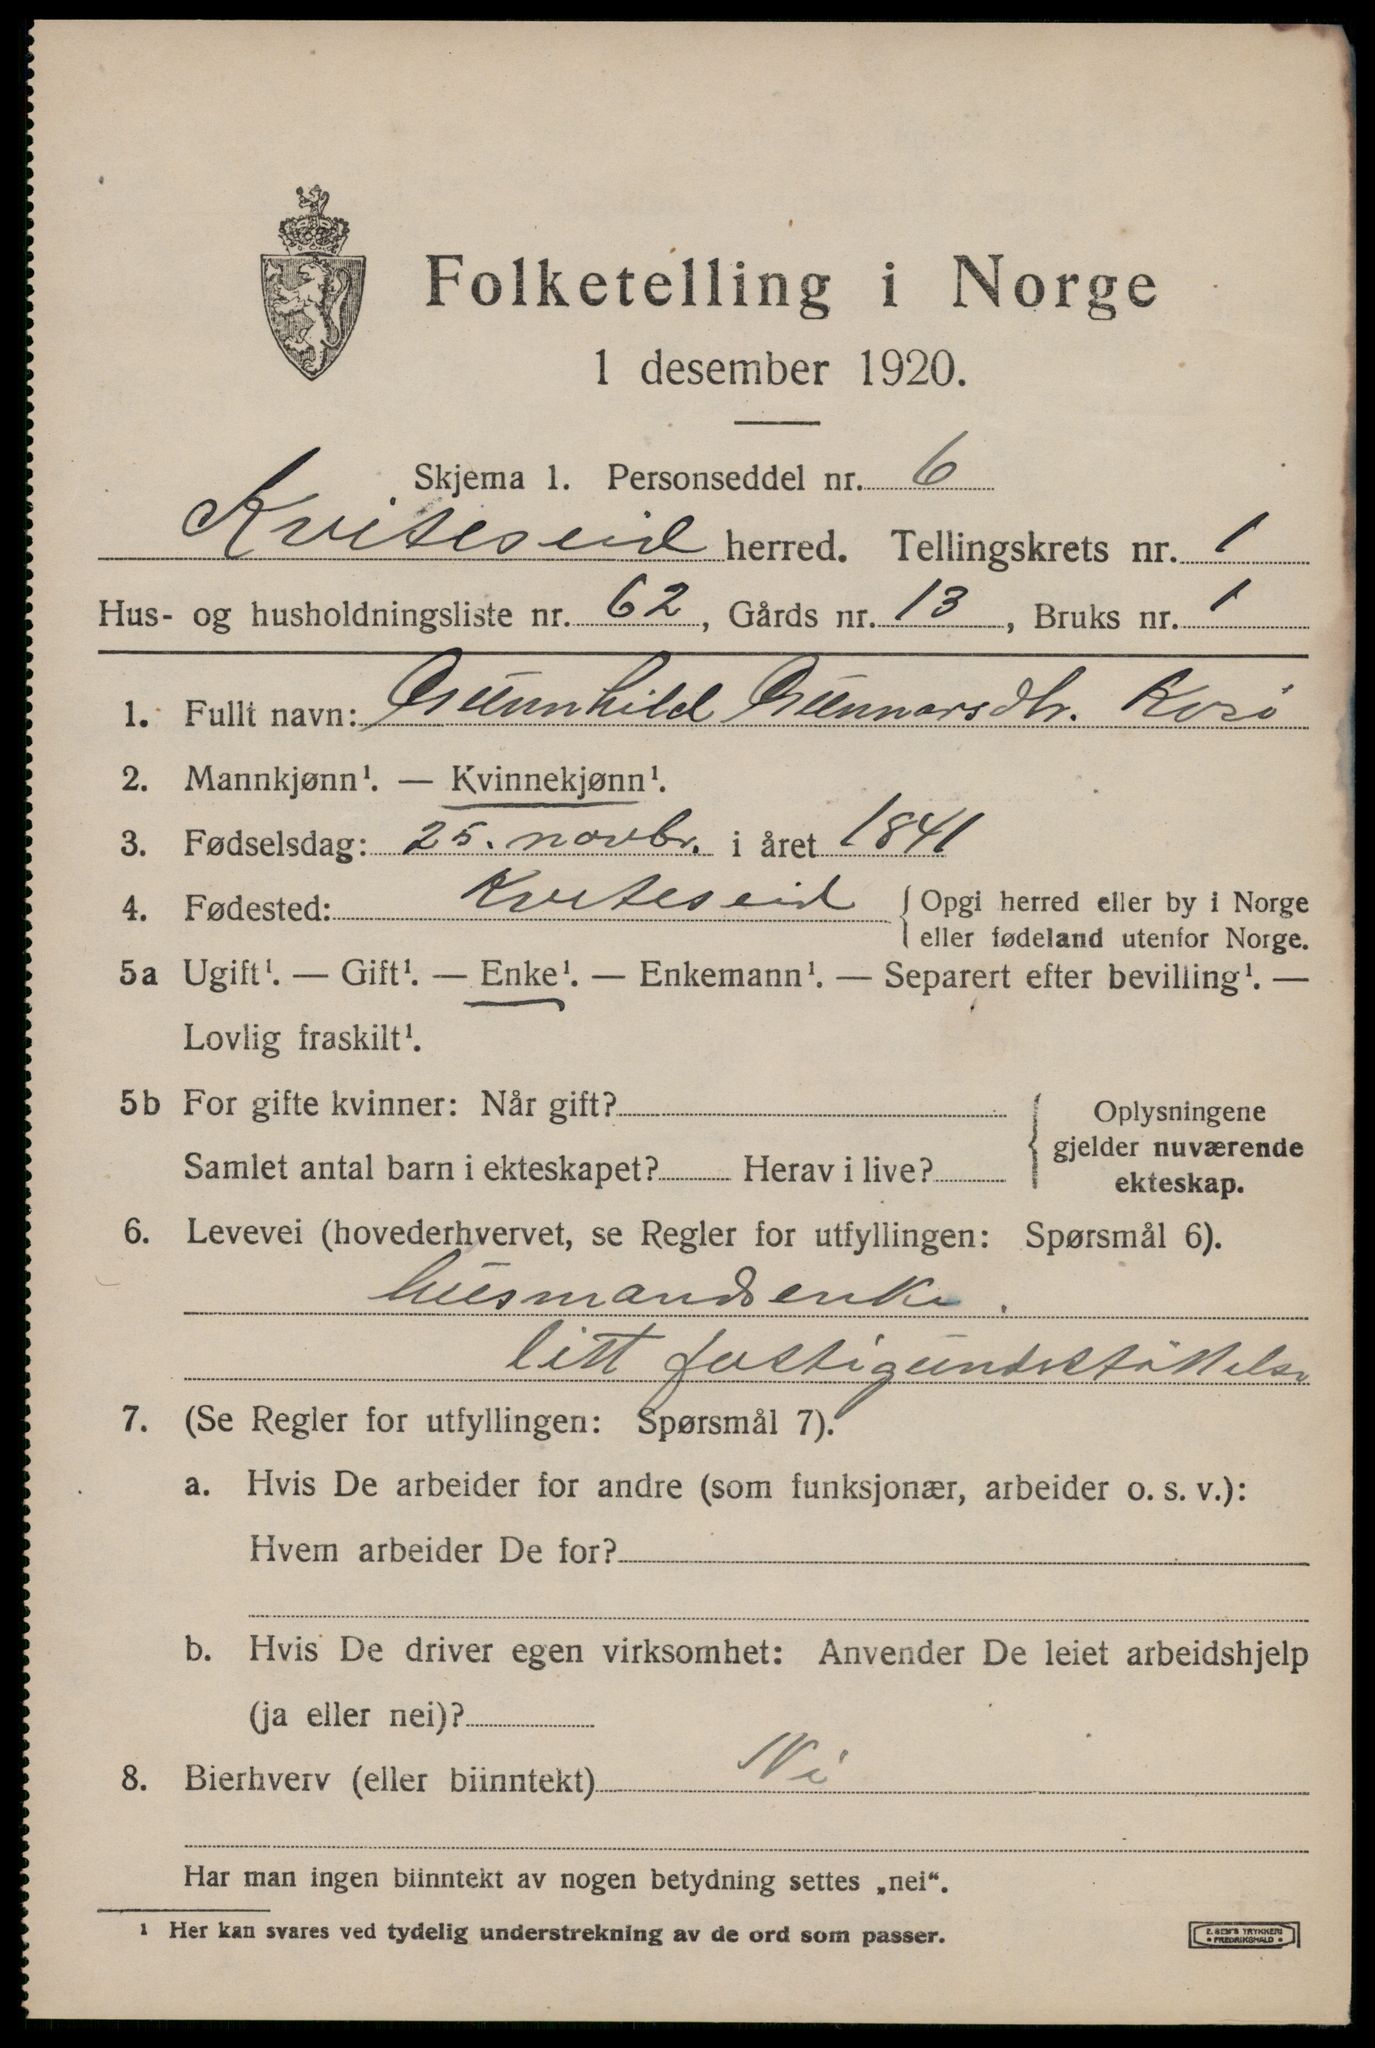 Folketelling i Norge
1 desember 1920.
Skjema 1. Personseddel nr. 6
Kviteseid herred. Tellingskrets nr. 1
Hus- og husholdningsliste nr. 62, Gårds nr. 13, Bruks nr. 1
1. Fullt navn: Gunnhild Gunnarsdtr.
2. Mannkjønn¹. — Kvinnekjønn¹.
3. Fødselsdag: 25. novbr. i året 1841
4. Fødested: Kviteseid { Opgi herred eller by i Norge
eller fødeland utenfor Norge.
5a Ugift¹. — Gift¹. — Enke¹. — Enkemann¹. — Separert efter bevilling¹. —
Lovlig fraskilt¹.
5b For gifte kvinner: Når gift?
Samlet antal barn i ekteskapet? Herav i live?
{ Oplysningene
gjelder nuværende
ekteskap.
6. Levevei (hovederhvervet, se Regler for utfyllingen: Spørsmål 6).
husmandsenke.
litt fattigunderstöttelse
7. (Se Regler for utfyllingen: Spørsmål 7).
a. Hvis De arbeider for andre (som funksjonær, arbeider o. s. v.):
Hvem arbeider De for?
b. Hvis De driver egen virksomhet: Anvender De leiet arbeidshjelp
(ja eller nei)?
8. Bierhverv (eller biinntekt) Nei
Har man ingen biinntekt av nogen betydning settes „nei“.
¹ Her kan svares ved tydelig understrekning av de ord som passer.
E. SEM'S TRYKKERI
• FREDRIKSHALD •